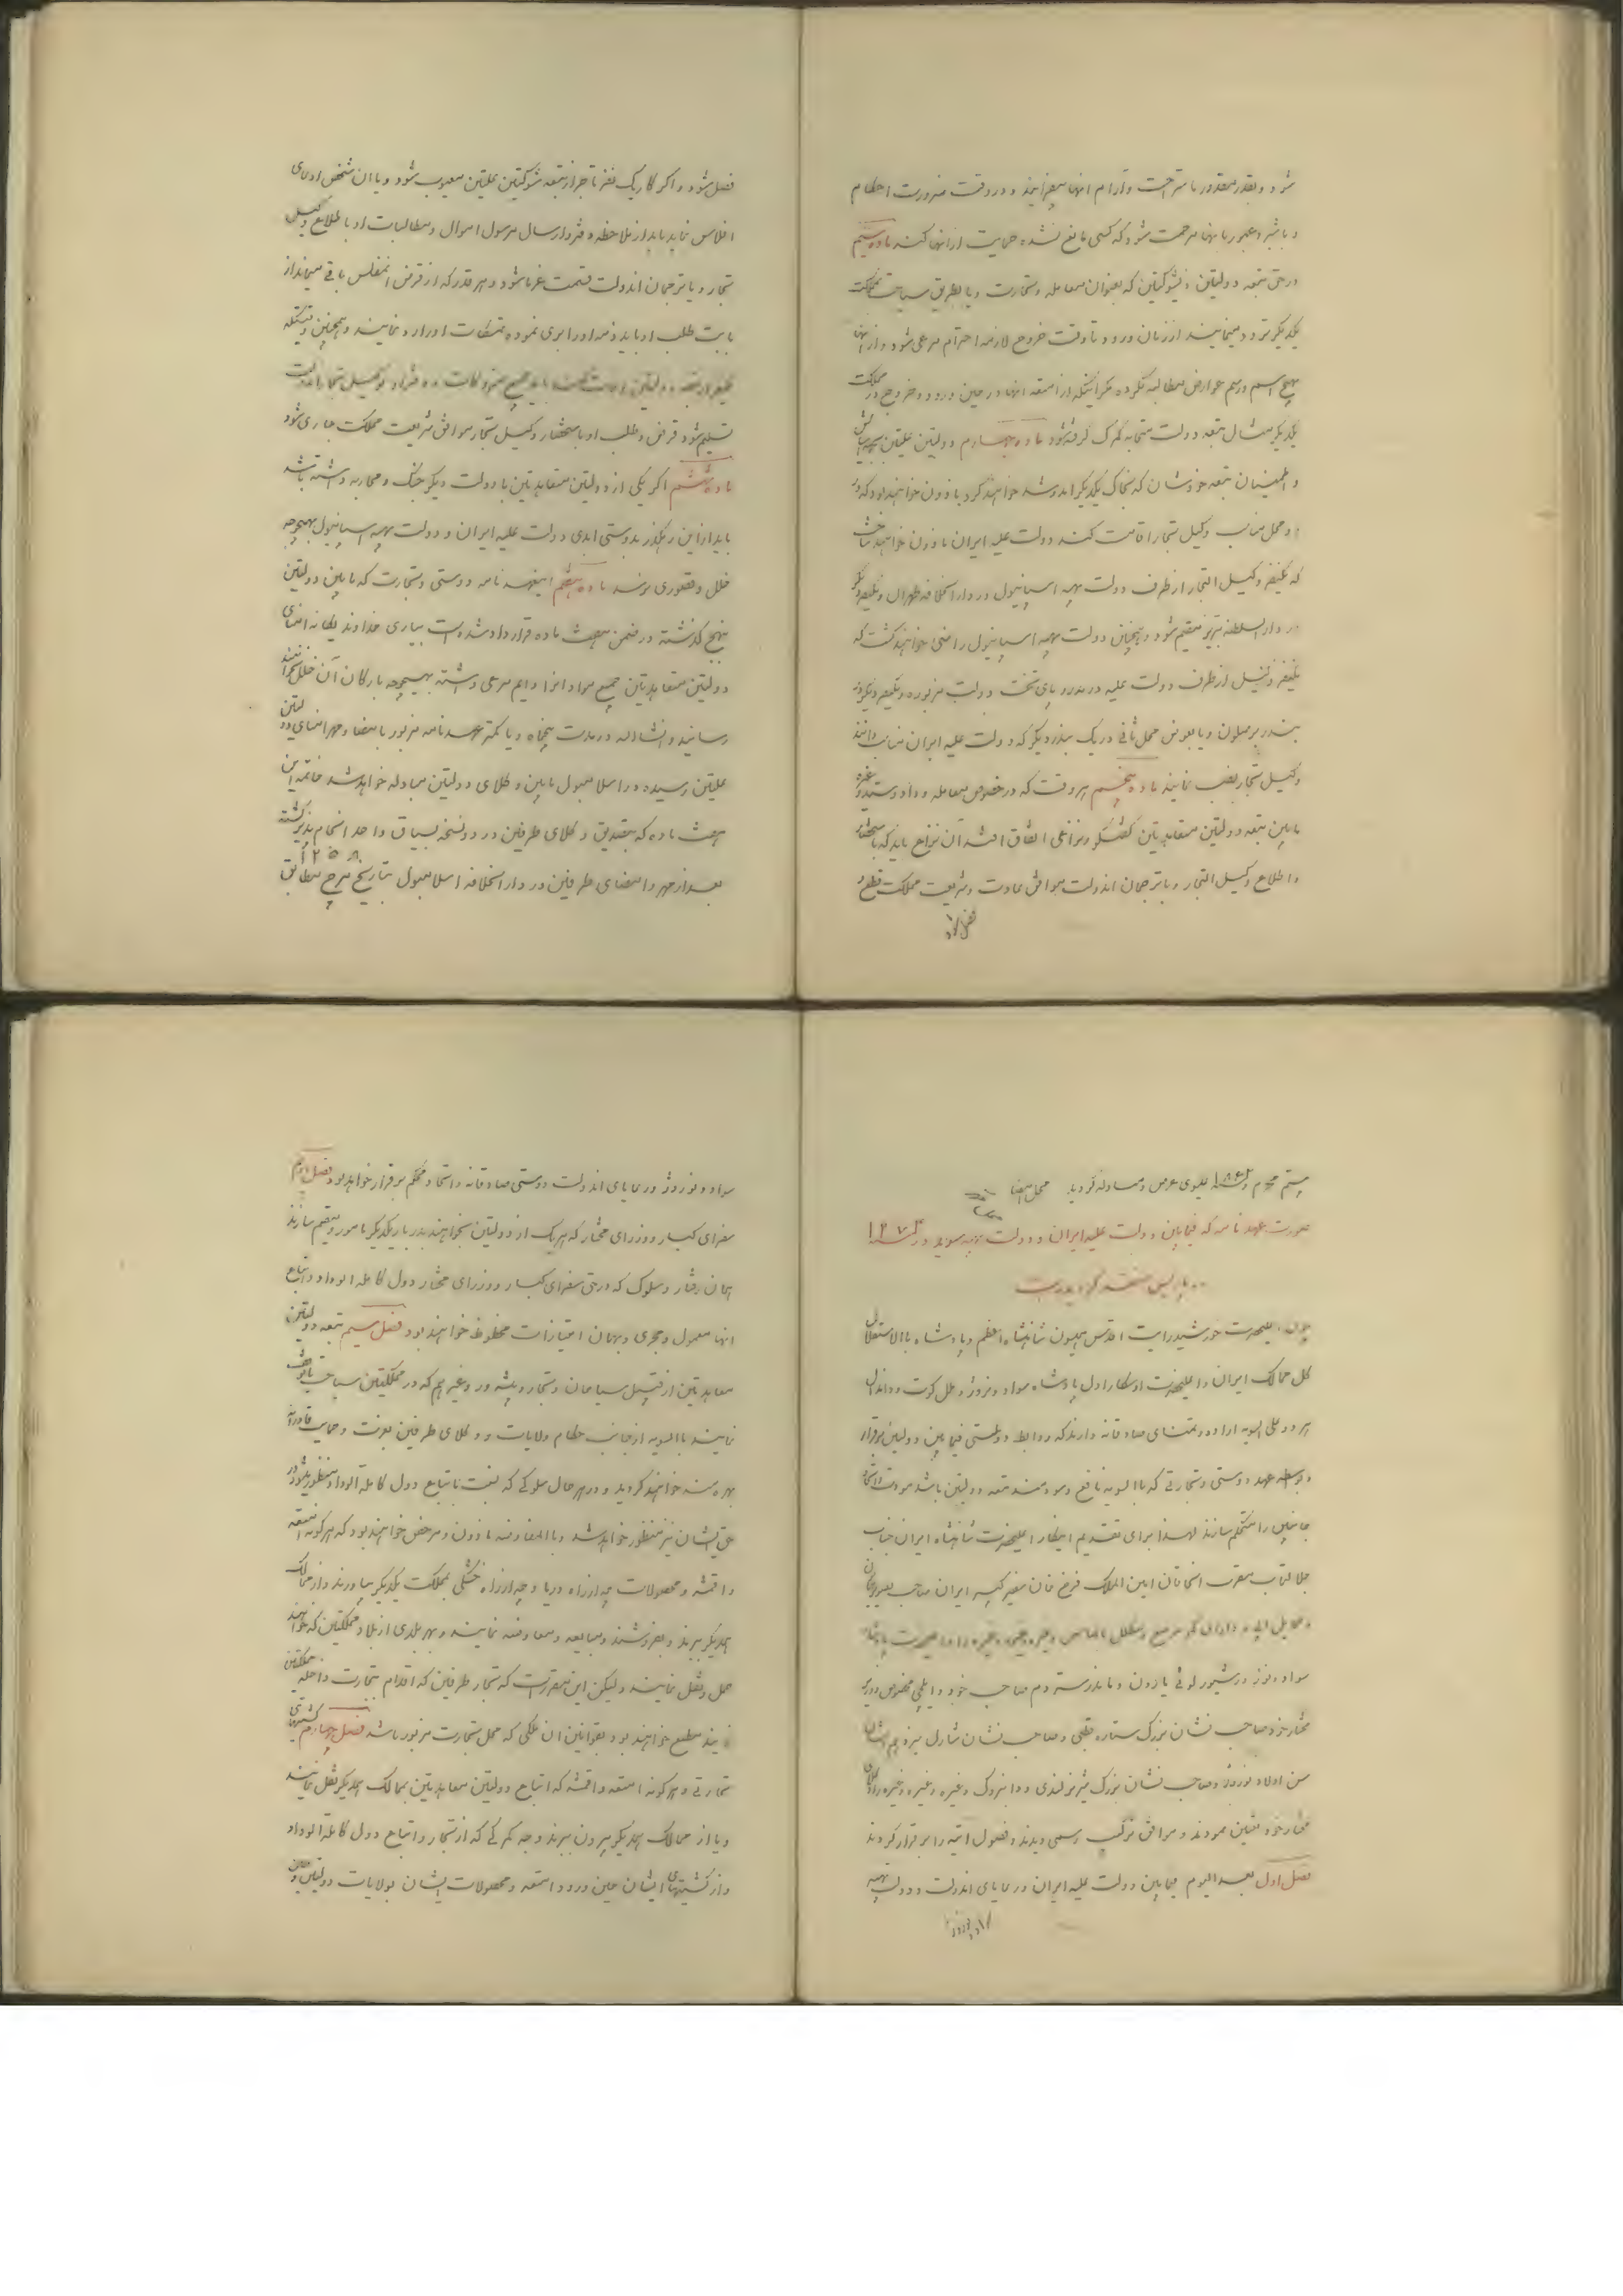 شود و بقدر مقدور باستراحت و آرام آنها بیفزایند و در وقت ضرورت احکام
و باشبرد عبور بانها مرحمت شود که کسی مانع نشده حمایت از آنها کنند ماده سیم
در حق تبعه دولتین ذیشوکتین که بعنوان معامله و تجارت و یا بطریق سیاحت بمملکت
یکدیگر تردد مینمایند از زمان ورود تا وقت خروج لازمه احترام مرعی شود و از آنها
بهیچ اسم و رسم عوارض مطالبه نکرده مکر اینکه از امتعه آنها در حین ورود و خروج در مملکت
یکدیگر مثال تبعه دولت متحابه گمرک گرفته شود ماده چهارم دولتین علیتین بجهة آسایش
و اطمینان تبعه خودشان که بخاک یکدیگر آمد و شد خواهند کرد ماذون خواهند داد که در
دو محل مناسب وکیل تجار اقامت کنند دولت علیه ایران ماذون خواهند ساخت
که یکنفر وکیل التجار از طرف دولت بهیه اسپانیول در دار الخلافه طهران و یکنفر دیگر
در دار السلطنه تبریز مقیم شود و همچنین دولت بهیه اسپانیول راضی خواهند گشت که
یکنفر وکیل از طرف دولت علیه در مدرد پای تخت دولت مزبوره و یکنفر دیگر در
بندر برصلون و یا بعوض محل ثانی در یک بندر دیگر که دولت علیه ایران مناسب دانند
وکیل تجار نصب نمایند ماده پنجم هر وقت که در خصوص معامله و داد و ستد و غیره
ما بین تبعه دولتین متعاهدتین گفتگو و نزاعی اتفاق افتد آن نزاع باید که باستحضار
و اطلاع وکیل التجار و یا ترجمان آندولت موافق عادت و شریعت مملکت قطع و
فصل شود
فصل شود و اکر کار یک نفر تاجر از تبعه شوکتین علیتین معیوب شود و یا آن شخص ادعای
افلاس نماید باید از ملاحظه دفتر و ارسال مرسول اموال و مطالبات او باطلاع وکیل
تجار و یا ترجمان آندولت قسمت غرما شود و هر قدر که از قرض آنمفلس باقی میماند از
بابت طلب او باید ذمه او را بری نموده تمسکات او را رد نمایند و همچنین وقتیکه
تسلیم شود قرض و طلب او باستحضار وکیل تجار موافق شریعت مملکت جاری شود
ماده ششم اکر یکی از دولتین متعاهدتین با دولت دیگر جنگ و محاربه داشته باشد
باید از این رهگذر بدوستی ابدی دولت علیه ایران و دولت بهیه اسپانیول بهیچوجه
خلل و قصوری نرسد ماده هفتم اینعهد نامه دوستی و تجارت که ما بین دولتین
بنهج گذشته در ضمن هفت ماده قرارداد شده است بیاری خداوند یگانه امنای
دولتین متعاهدتین جمیع مواد آنرا دایم مرعی داشته بهیچوجه بارکان آن خلل نخواهند
رسانید و انشاءالله در مدت پنجماه و یا کمتر عهدنامه مزبور بامضاء و مهر امنای دولتین
علیتین رسیده در اسلامبول ما بین وکلای دولتین مبادله خواهد شد خاتمه این
هفت ماده که بتصدیق وکلای طرفین در دو نسخه بسیاق واحد انجام پذیر گشته
۱۲۵۸
بعد از مهر و امضای طرفین در دار الخلافه اسلامبول بتاریخ مطابق
۱۸۴۲ عیسوی عرض و مبادله گردید محل امضا
صورت عهدنامه که فیمابین دولت علیه ایران و دولت بهیه سوید در سنه ۱۲۷۳
در پاریس منعقد گردیده است
چون اعلیحضرت خورشید رایت اقدس همیون شاهنشاه اعظم و پادشاه بالاستقلال
کل ممالک ایران و اعلیحضرت اوسکار اول پادشاه سواد و نروژ و
هر دو علی السویه اراده و تمنای صادقانه دارند که روابط دوستی فیما بین دولتین برقرار
و بواسطه عهد دوستی و تجارتی که باالسویه نافع و سودمند تبعه دولتین باشد مودت و اتحاد
جانبین را مستحکم سازند لهذا برای تقدیم اینکار اعلیحضرت شاهنشاه ایران جناب
جلالتمآب مقرب الخاقان امین الملک فرخ خان سفیر کبیر ایران صاحب تصویر
مختار خود صاحب نشان بزرگ ستاره قطبی و صاحب نشان شارل سیزدهم
مختار خود تعیین نمودند و موافق ترکیب رسمی دیدند و فصول آتیه را برقرار کردند
فصل اول بعد الیوم فیمابین دولت علیه ایران و رعایای آندولت و دولت بهیه
سواد و نوروژ و رعایای آندولت دوستی صادقانه و اتحاد محکم برقرار خواهد بود فصل دویم
سفرای کبار و وزرای مختار که هر یک از دولتین بخواهند بدربار یکدیگر مامور و مقیم سازند
همان رفتار و سلوک که در حق سفرای کبار و وزرای مختار دول کامله الوداد و اتباع
آنها معمول و مجری و بهمان امتیازات محظوظ خواهند بود فصل سیم تبعه دولتین
معاهدتین از قبیل سیاحان و تجار و پیشه ور و غیرهم که در مملکتین سیاحت یا توقف
نمایند باالسویه از جانب حکام ولایات و وکلای طرفین بعزت و حمایت قادرانه
بهره مند خواهند گردید و در هر حال سلوکی که نسبت باتباع دول کامله الوداد منظور میشود در
حق ایشان نیز منظور خواهد شد و باالمعاوضه ماذون و مرخص خواهند بود که هر گونه امتعه
و اقمشه و محصولات چه از راه دریا و چه از راه خشکی بمملکت یکدیگر بیاورند و از ممالک
همدیگر ببرند و بفروشند و مبایعه و معاوضه نمایند و بهر بلدی از بلاد مملکتین که خواهند
حمل و نقل نمایند ولیکن این مقرر است که تجار طرفین که اقدام بتجارت داخله مملکتین
نمایند مطیع خواهند بود بقوانین آن ملکی که محل تجارت مزبور باشد فصل چهارم کشتیهای
تجارتی و هر گونه امتعه و اقمشه که اتباع دولتین معاهدتین بممالک همدیگر نقل نمایند
و یا از ممالک همدیگر بیرون ببرند وجه گمرکی که از تجار و اتباع دول کامله الوداد
و از کشتیهای ایشان حین ورود امتعه و محصولات ایشان بولایات دولتین و حین